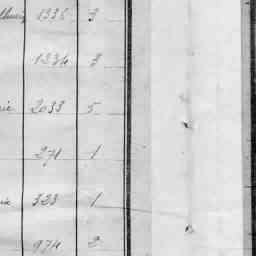 1336 3
1334 3
2033 5
271 1
323 1
974 2